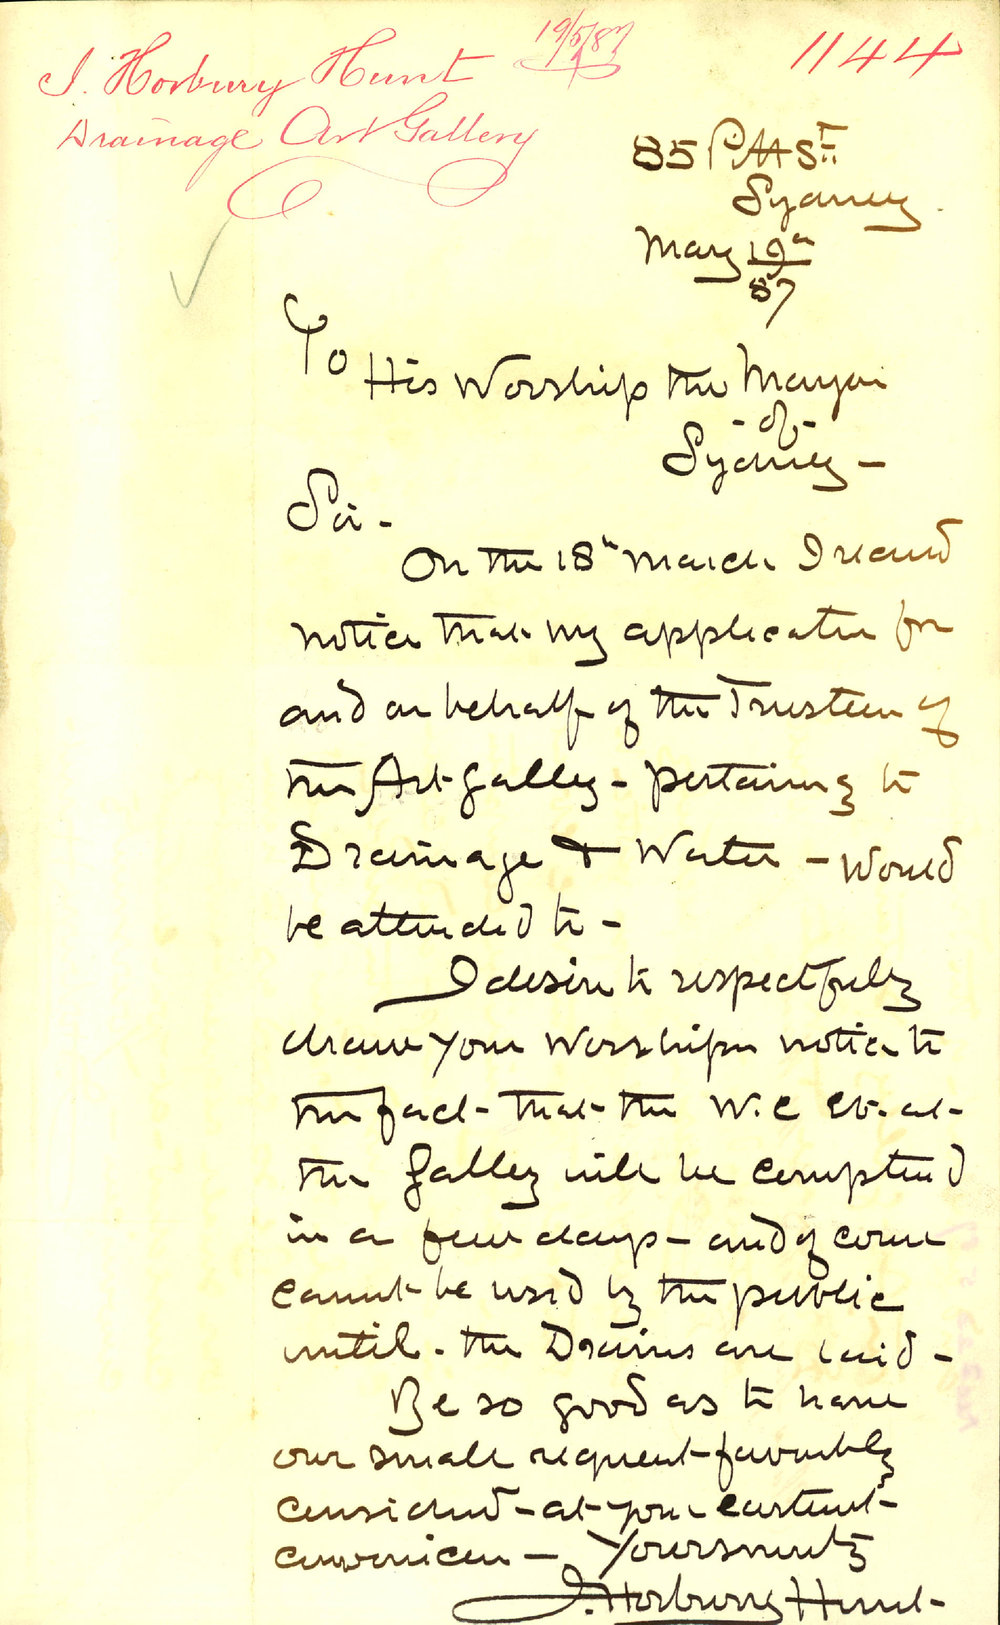 J. Horbury Hunt 19/5/87
1144
Drainage Art Gallery
85 Pitt St
Sydney
May 19th
87
To
His Worship the Mayor
- of -
Sydney -
Sir -
On the 18th March I received
notice that my application for
and on behalf of the Trustees of
the Art Gallery - pertaining to
Drainage & Water - would
be attended to -
I desire to respectfully
draw your Worships notice to
the fact - that the W.C at
the Gallery will be completed
in a few days - and of course
cannot be used by the public
until - the Drains are laid -
Be so good as to have
our small request favourably
considered - at your earliest
convenience - Yours
J. Horbury Hunt -